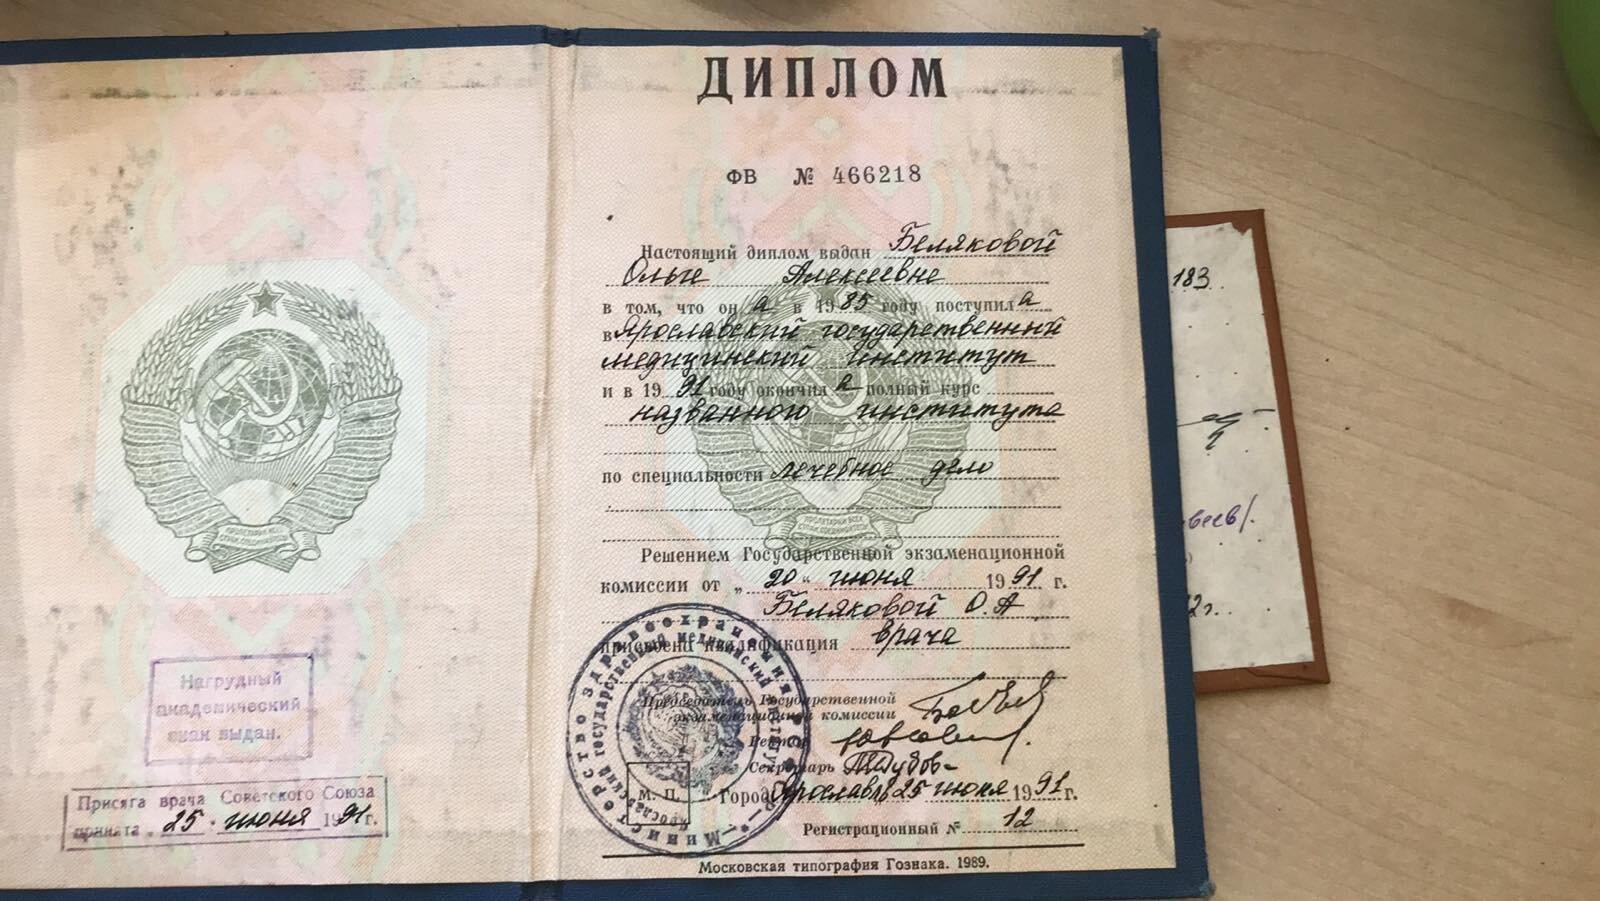 ПРОЛЕТАРИИ ВСЕХ
СТРАН, СОЕДИНЯЙТЕСЬ!
Нагрудный
академический
знак выдан.
Присяга врача Советского Союза
принята „25“ июня 1991г.
ДИПЛОМ
ФВ № 466218
Настоящий диплом выдан Беляковой
Ольге Алексеевне
в том, что он а в 1985 году поступил а
в Ярославский государственный
медицинский институт
и в 1991 году окончил а полный курс
названного института
по специальности лечебное дело
ПРОЛЕТАРИИ ВСЕХ
СТРАН, СОЕДИНЯЙТЕСЬ!
Решением Государственной экзаменационной
комиссии от „20“ июня 1991 г.
Беляковой О.А
присвоена квалификация врача
Председатель Государственной
экзаменационной комиссии
Ректор
Секретарь
М. П.
Город Ярославль 25 июня 1991 г.
Регистрационный № 12
Московская типография Гознака. 1989.
Министерство здравоохранения
Ярославский государственный медицинский институт
183
веев/.
2г.